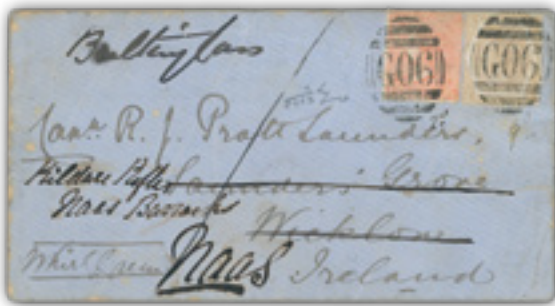 Baltinglass
G06 G06
Capt. R. J. Pratt Saunders,
Kildare Rifles Saunders' Grove
Naas Barracks Wicklow
Naas Ireland